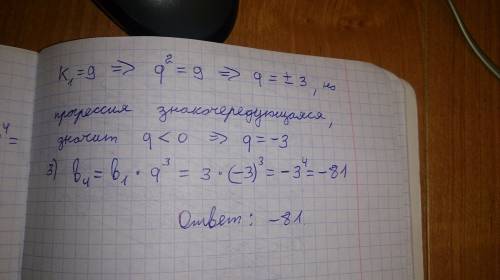 K₁ = 9 => q² = 9 => q = ± 3, но
прогрессия знакочередующаяся,
значит q < 0 => q = -3
3) b₄ = b₁ · q³ = 3 · (-3)³ = -3⁴ = -81
Ответ: -81
4
=